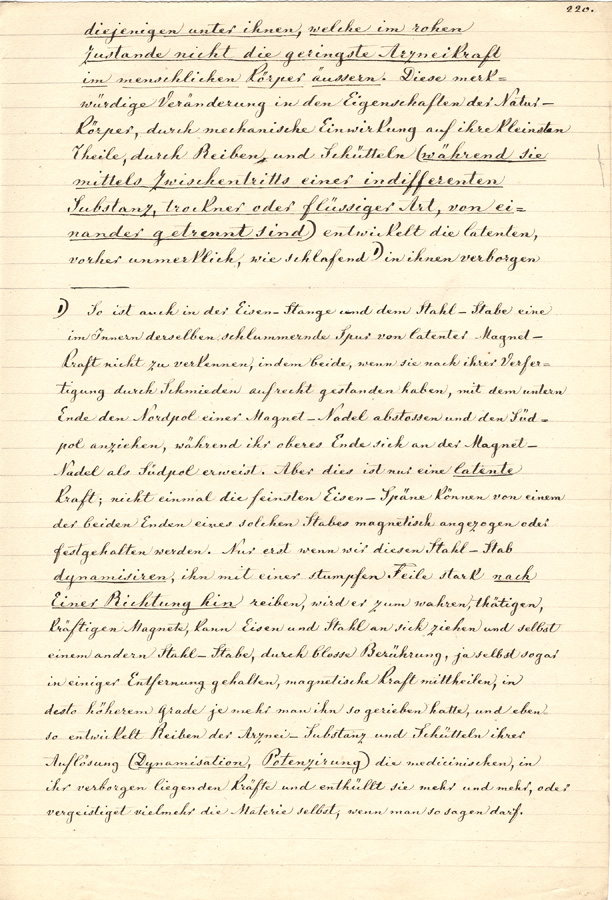 220.
diejenigen unter ihnen, welche im rohen
Zustande nicht die geringste Arzneikraft
im menschlichen Körper äussern. Diese merk=
würdige Veränderung in den Eigenschaften der Natur-
Körper, durch mechanische Einwirkung auf ihre kleinsten
Theile, durch Reiben und Schütteln (während sie
mittels Zwischentritts einer indifferenten
Substanz, trockner oder flüssiger Art, von ei=
nander getrennt sind) entwickelt die latenten,
vorher unmerklich, wie schlafend 1) in ihnen verborgen
1) So ist auch in der Eisen-Stange und dem Stahl-Stabe eine
im Innern derselben schlummernde Spur von latenter Magnet-
Kraft nicht zu verkennen, indem beide, wenn sie nach ihrer Verfer=
tigung durch Schmieden aufrecht gestanden haben, mit dem untern
Ende den Nordpol einer Magnet-Nadel abstossen und den Süd=
pol anziehen, während ihr oberes Ende sich an der Magnet-
Nadel als Südpol erweist. Aber dies ist nur eine latente
Kraft; nicht einmal die feinsten Eisen-Späne können von einem
der beiden Enden eines solchen Stabes magnetisch angezogen oder
festgehalten werden. Nur erst wenn wir diesen Stahl-Stab
dynamisiren, ihn mit einer stumpfen Feile stark nach
Einer Richtung hin reiben, wird er zum wahren, thätigen,
kräftigen Magnete, kann Eisen und Stahl an sich ziehen und selbst
einem andern Stahl-Stabe, durch blosse Berührung, ja selbst sogar
in einiger Entfernung gehalten, magnetische Kraft mittheilen, in
desto höherem Grade je mehr man ihn so gerieben hatte, und eben
so entwickelt Reiben der Arznei-Substanz und Schütteln ihrer
Auflösung (Dynamisation, Potenzirung) die medicinischen, in
ihr verborgen liegenden Kräfte und enthüllt sie mehr und mehr, oder
vergeistiget vielmehr die Materie selbst, wenn man so sagen darf.